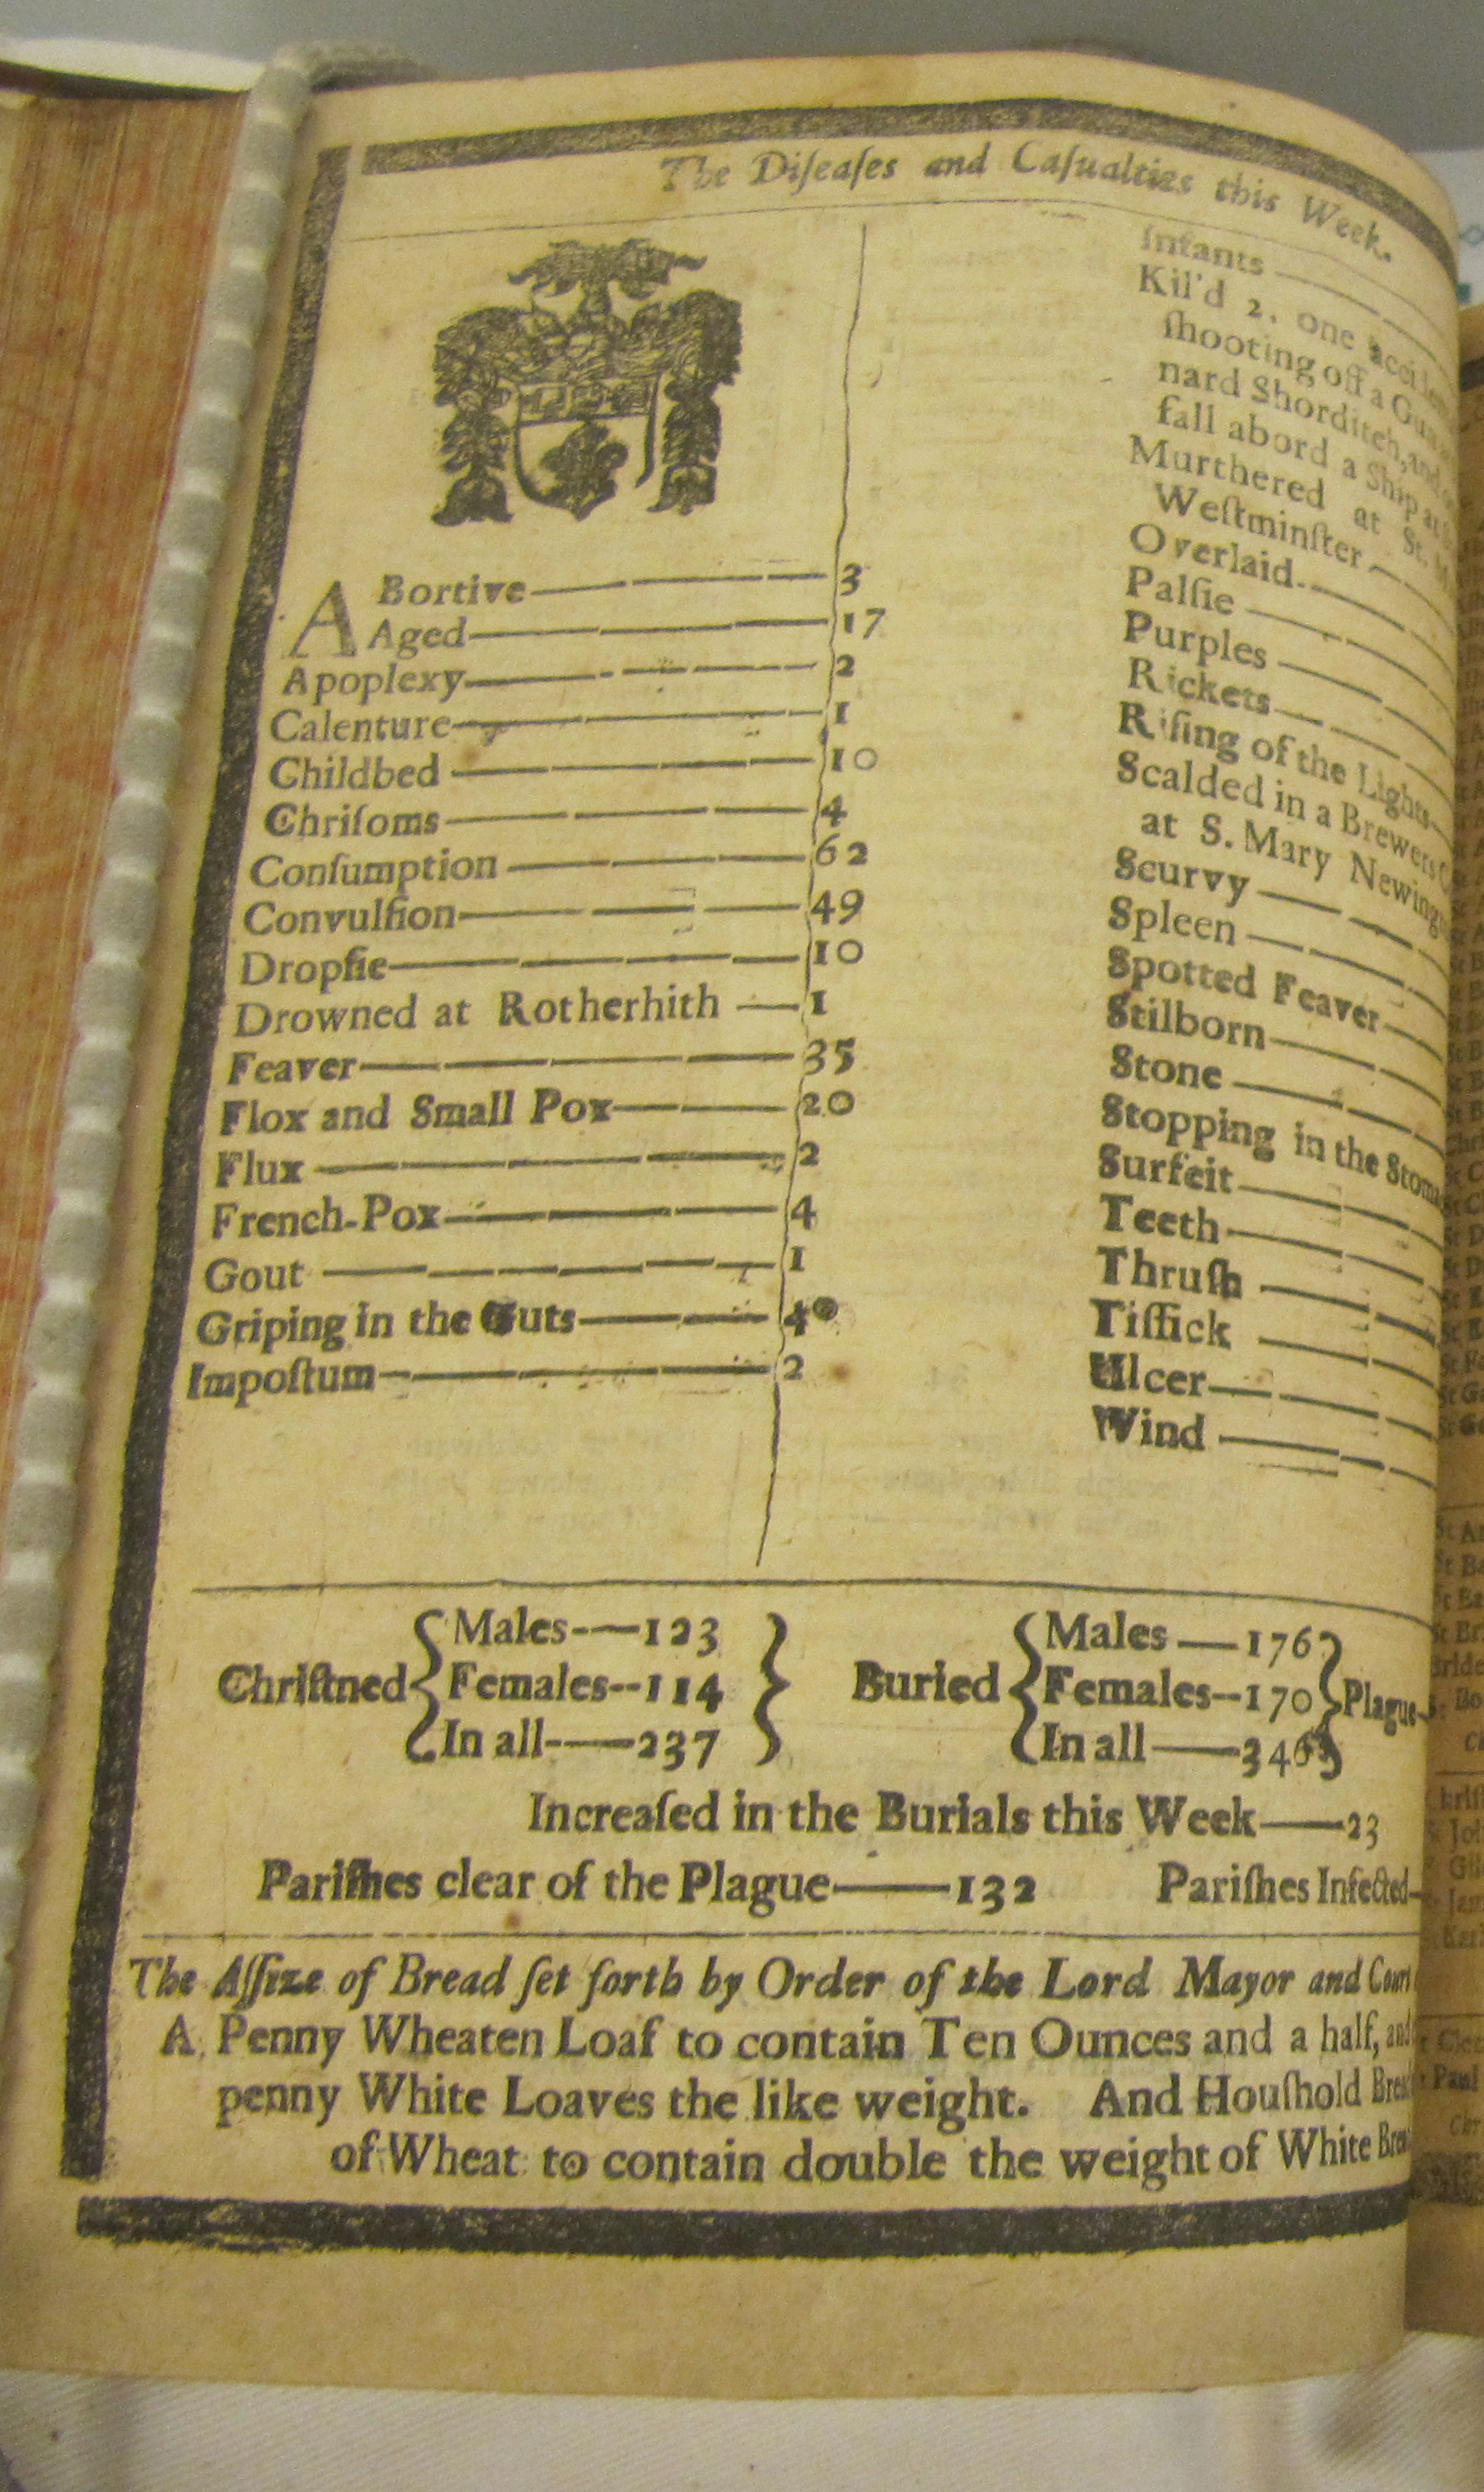 The Diſeaſes and Caſualties this Week.
ABortive 3
Aged 17
Apoplexy 2
Calenture 1
Childbed 10
Chriſoms 4
Conſumption 62
Convulſion 49
Dropſie 10
Drowned at Rotherhith 1
Feaver 35
Flox and Small Pox 20
Flux 2
French-Pox 4
Gout 1
Griping in the Guts 40
Impoſtum 2
Infants
Kil'd 2. one
ſhooting off a Gun
nard Shorditch, and
fall abord a Ship at
Murthered at St.
Weſtminſter
Overlaid
Palſie
Purples
Rickets
Riſing of the Lights
Scalded in a Brewers
at S. Mary
Scurvy
Spleen
Spotted Feaver
Stilborn
Stone
Stopping in the
Surfeit
Teeth
Thruſh
Tiſſick
Ulcer
Wind
Chriſtned { Males 123 Females 114 In all 237 }
Buried { Males 176 Females 170 In all 346 } Plague
Increaſed in the Burials this Week 23
Pariſhes clear of the Plague 132 Pariſhes Infected
The Aſſize of Bread ſet forth by Order of the Lord Mayor and Court
A Penny Wheaten Loaf to contain Ten Ounces and a half, and
penny White Loaves the like weight. And Houſhold
of Wheat to contain double the weight of White